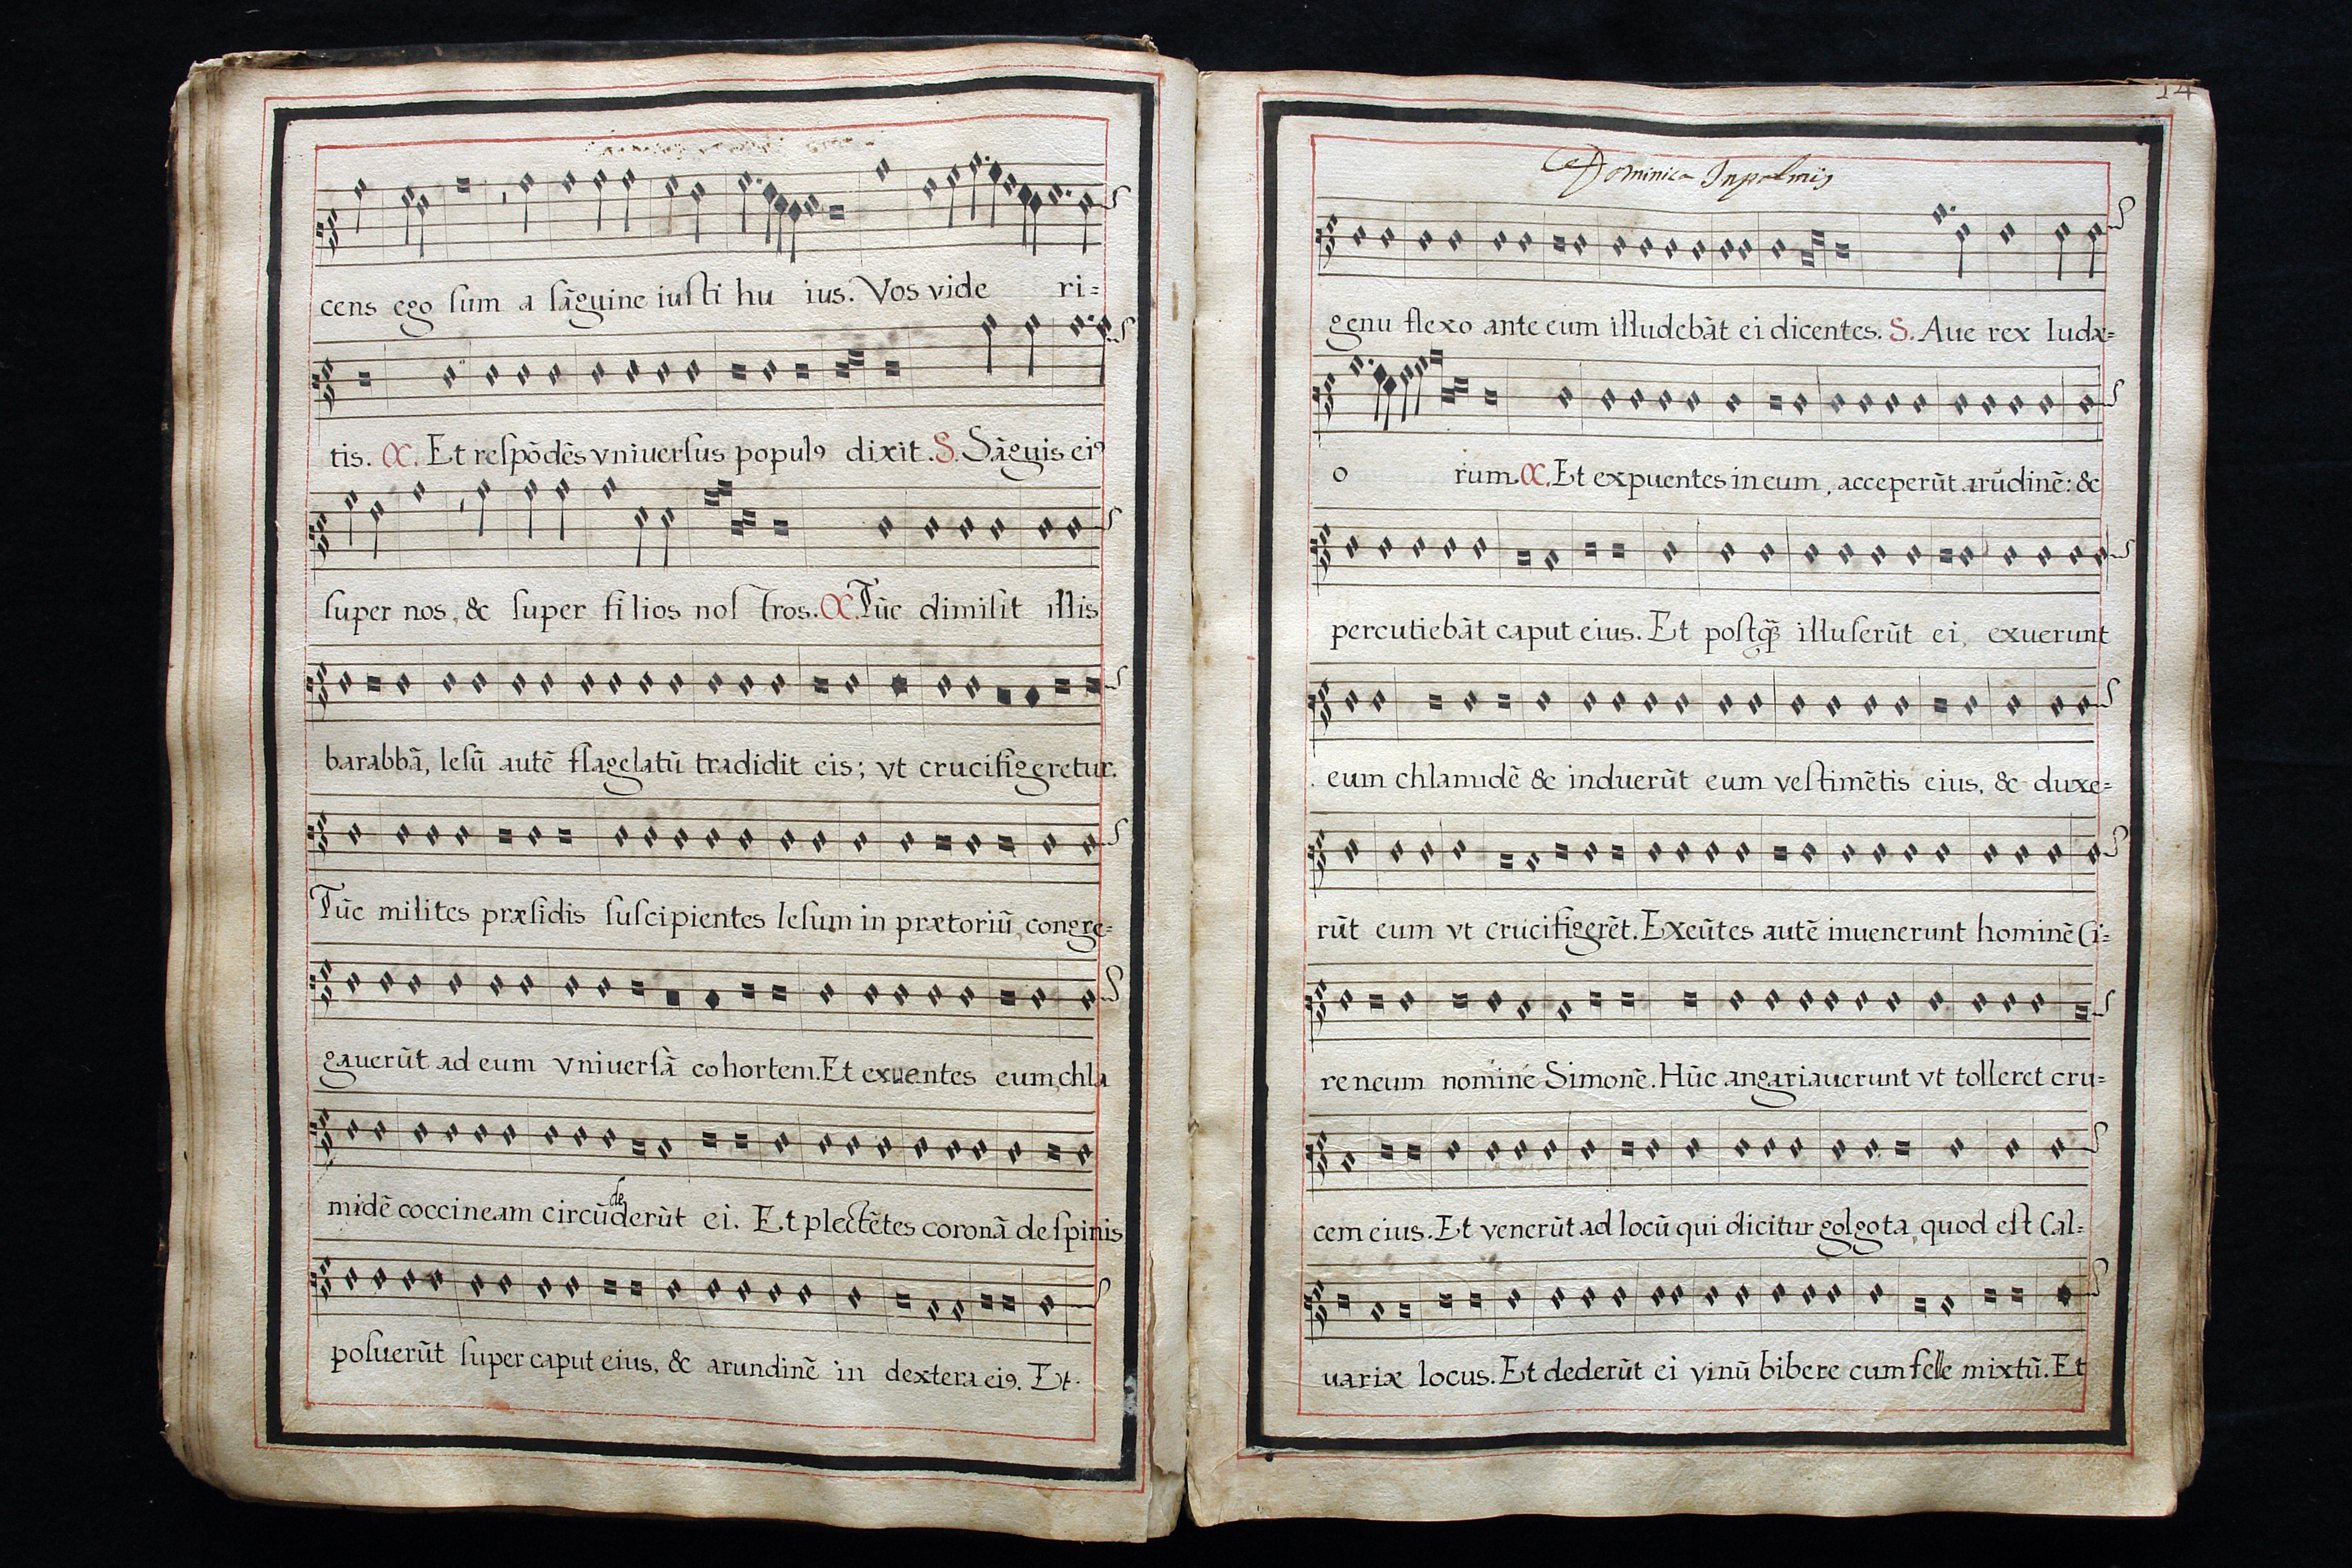 cens ego ſum a ſãguine iuſti hu ius. Vos vide ri=
tis. C. Et reſpõdẽs vniuerſus populꝯ dixit. S. Sãguis eiꝯ
ſuper nos, & ſuper filios noſ tros. C. Tũc dimiſit illis
barabbã, Ieſũ autẽ flagelatũ tradidit eis; vt crucifigeretur.
Tũc milites præſidis ſuſcipientes Ieſum in prætoriũ, congre=
gauerũt ad eum vniuerſã cohortem. Et exuentes eum, chla
midẽ coccineam circũdederũt ei. Et plectẽtes coronã de ſpinis
poſuerũt ſuper caput eius, & arundinẽ in dextera eiꝯ. Et
14
Dominica In palmis
genu flexo ante eum illudebãt ei dicentes. S. Aue rex Iudæ=
o rum. C. Et expuentes in eum, acceperũt arũdinẽ: &
percutiebãt caput eius. Et poſtq̃ illuſerũt ei, exuerunt
eum chlamidẽ & induerũt eum veſtimẽtis eius, & duxe=
rũt eum vt crucifigerẽt. Exeũtes autẽ inuenerunt hominẽ Ci=
reneum nomine Simonẽ. Hũc angariauerunt vt tolleret cru=
cem eius. Et venerũt ad locũ qui dicitur golgota, quod eſt Cal=
uariæ locus. Et dederũt ei vinũ bibere cum felle mixtũ. Et